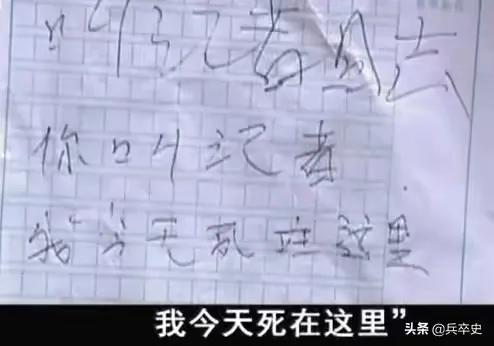 叫记者去
你叫记者
我今天死在这里
我今天死在这里”
头条 @兵卒史